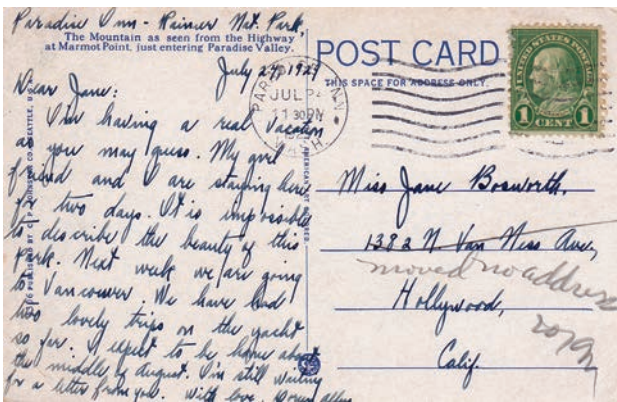 Paradise Inn - Rainier Nat. Park,
The Mountain as seen from the Highway
at Marmot Point, just entering Paradise Valley.
July 27, 1929
Dear Jane:
I'm having a real vacation
as you may guess. My girl
friend and I are staying here
for two days. It is impossible
to describe the beauty of this
Park. Next week we are going
to Vancouver. We have had
two lovely trips on the yacht
so far. I expect to be home about
the middle of August. I'm still waiting
for a letter from you. With love,
POST CARD
THIS SPACE FOR ADDRESS ONLY.
JUL
WASH.
UNITED STATES POSTAGE
1 CENT 1
Miss Jane Bosworth,
1382 N. Van Ness Ave,
moved no address
Hollywood,
Calif.